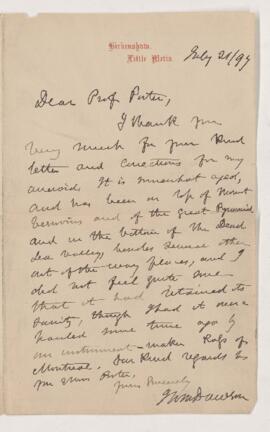 Birkenshaw,
Little Metis.
July 21/97
Dear Prof. Porter,
I thank you
very much for your kind
letter and corrections for my
aneroid. It is somewhat aged,
and has been on top of Mount
Vesuvius and of the great Pyramid
and in the bottom of the Dead
Sea valley, besides several other
out of the way places, and I
did not feel quite sure
that it had retained its
sanity, though I had it over
hauled some time ago by
an instrument-maker
Montreal. Our kind regards to
you & Mrs Porter,
Yours Sincerely
Wm Dawson